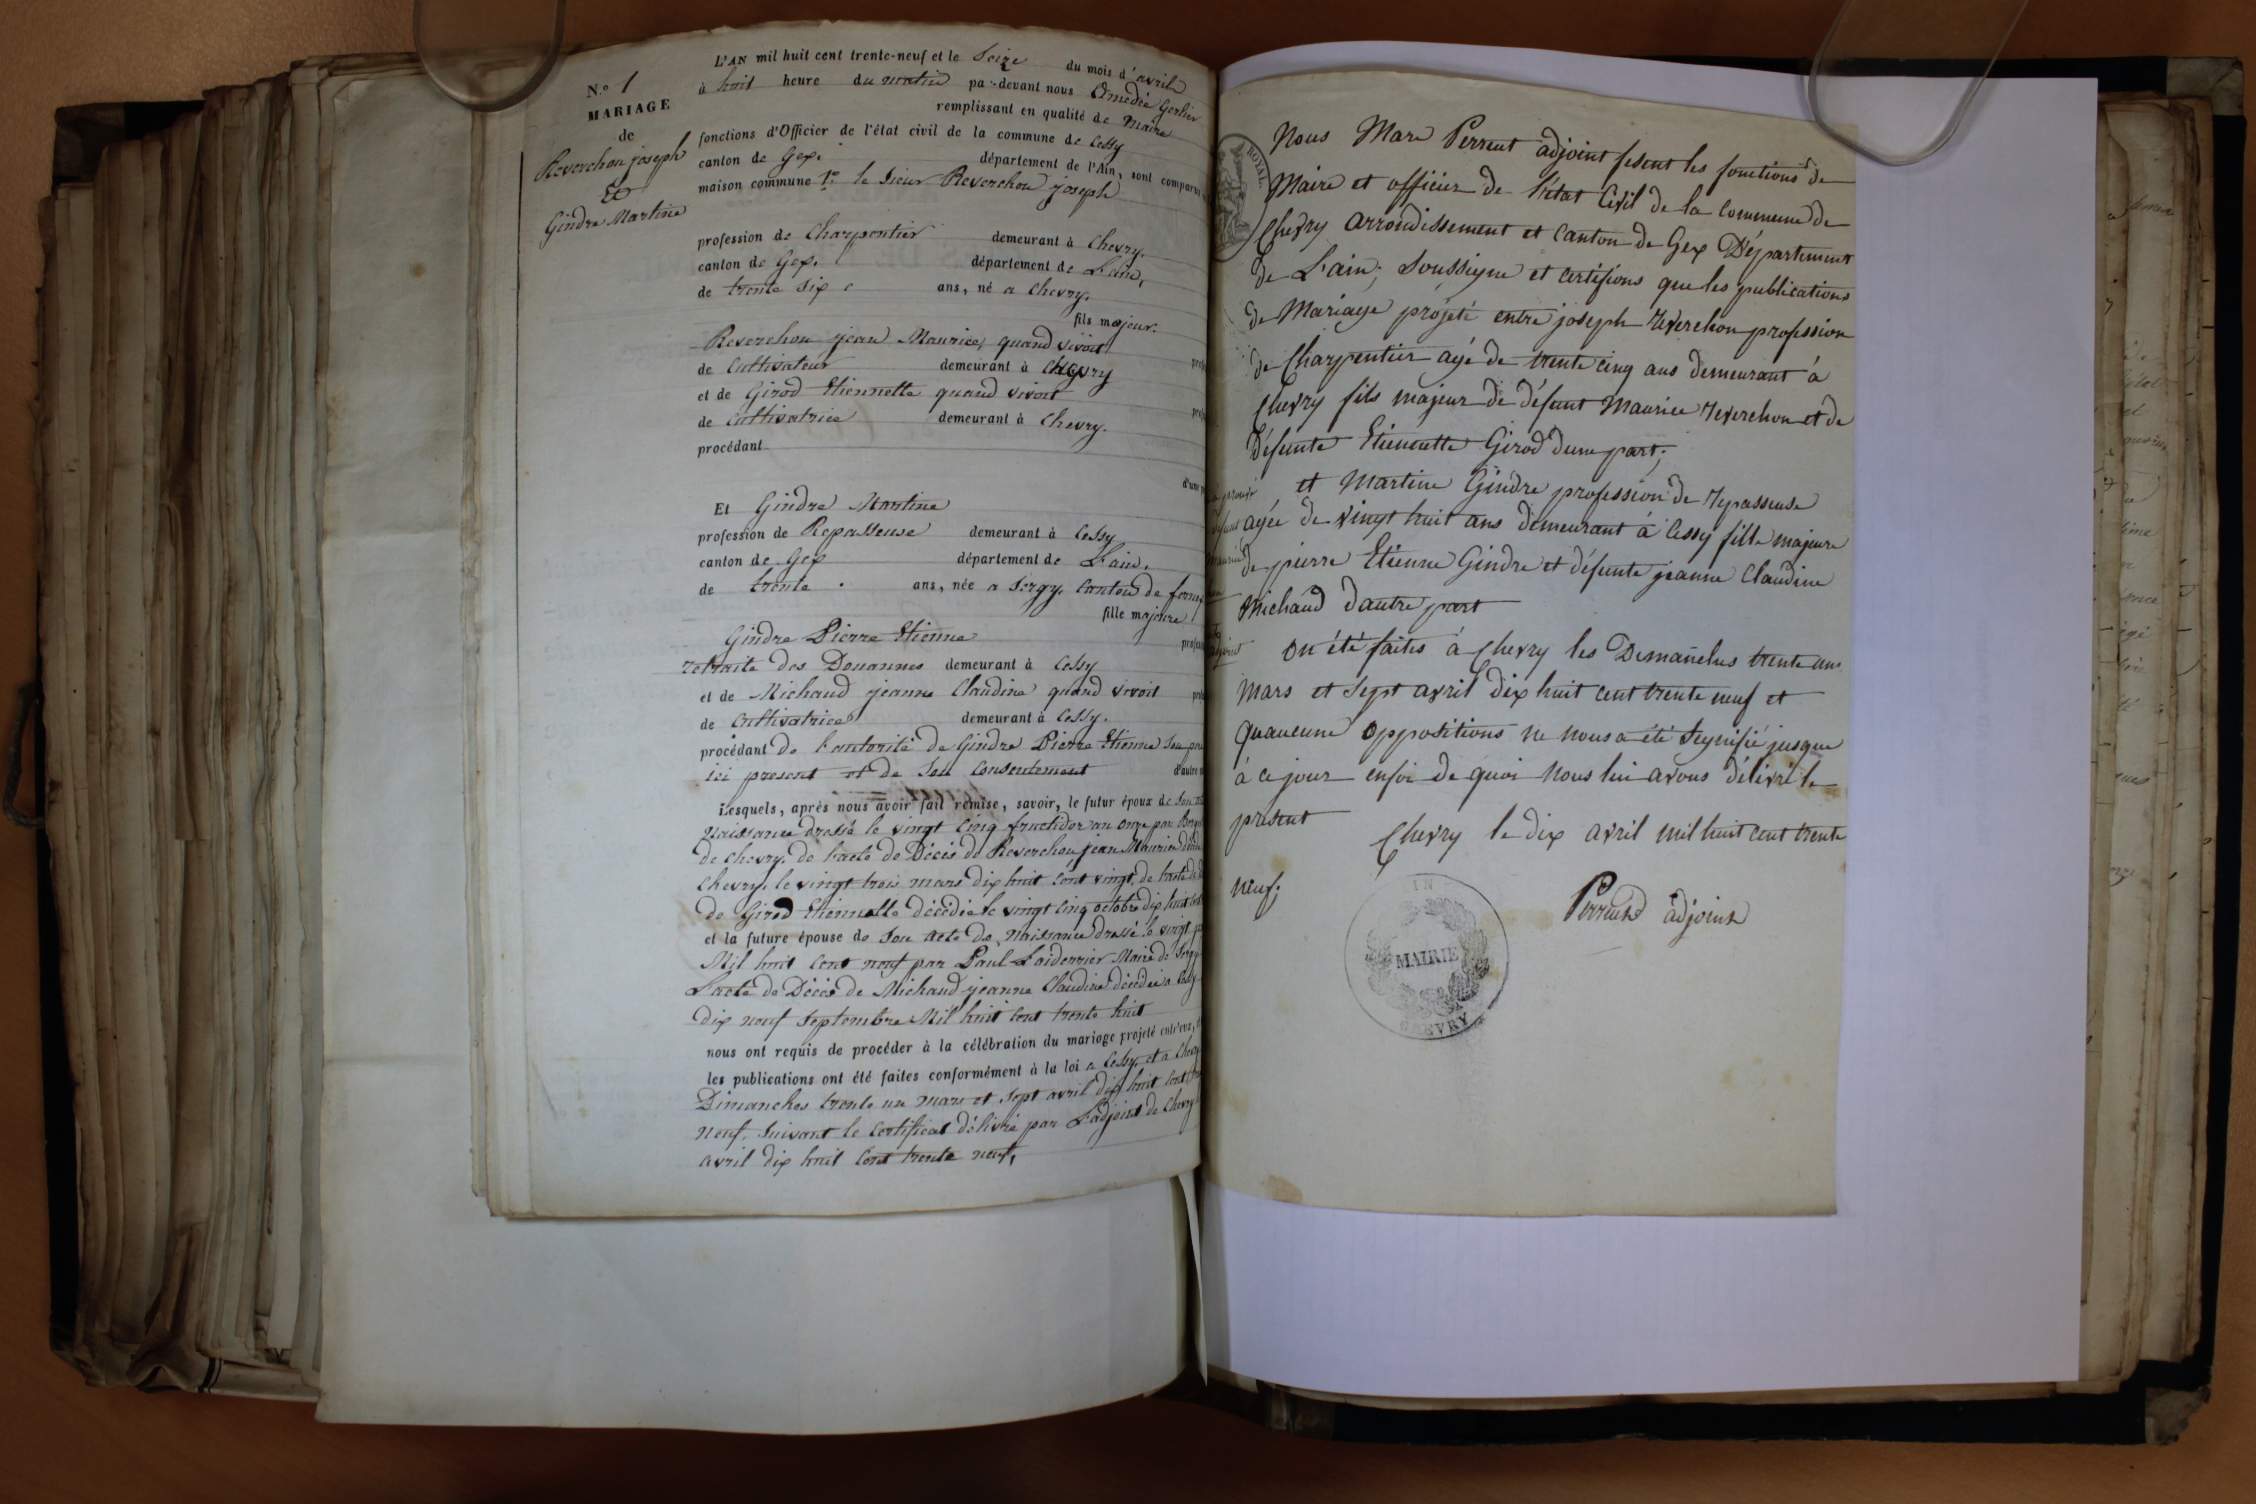 N.o 1
MARIAGE
de
Reverchon joseph
Et
Gindre Martine
L'AN mil huit cent trente-neuf et le Seize du mois d'avril
à huit heure du matin pa-devant nous Amedée Gerlier
remplissant en qualité de Maire
fonctions d'Officier de l'état civil de la commune de Cessy
canton de Gex. département de l'Ain, sont comparus
maison commune 1.o le Sieur Reverchon joseph
profession de Charpentier demeurant à Chevry.
canton de Gex. département de L'ain,
de trente Six ans, né a Chevry.
fils majeur.
Reverchon jean Maurice, quand vivoit
de Cultivateur demeurant à Chevry
et de Girod Etiennette quand vivoit
de Cultivatrice demeurant à Chevry.
procédant
Et Gindre Martine
profession de Repasseuse demeurant à Cessy
canton de Gex département de L'ain.
de trente ans, née a Sergy, Canton de
fille majeure
Gindre Pierre Etienne
retraité des Douannes demeurant à Cessy
et de Michaud jeanne Claudine quand vivoit
de Cultivatrice demeurant à Cessy.
procédant de l'autorité de Gindre Pierre Etienne Son
ici présent et de Son Consentement
Lesquels, après nous avoir fait remise, savoir, le futur époux de Son
Naissance dressé le vingt Cinq fructidor an onze par
de Chevry. de l'acte de Décès de Reverchon jean Maurice
Chevry, le vingt trois mars dix huit Cent vingt, de l'acte de
de Girod Etiennette décédée le vingt Cinq octobre dix huit
et la future épouse de Son acte de Naissance dressé le vingt
Mil huit Cent neuf par Paul Laiderrier Maire de Sergy
L'acte de Décès de Michaud jeanne Claudine décédée a Cessy
dix neuf Septembre Mil huit Cent trente huit
nous ont requis de procéder à la célébration du mariage projeté entr'eux,
les publications ont été faites conformément à la loi a Cessy et a Chevry
Dimanches trente un mars et Sept avril dix huit Cent
neuf, Suivant le Certificat délivré par L'adjoint de Chevry
avril dix huit Cent trente neuf,
ROYAL.
Nous Marc Perrent adjoint fesent les fonctions de
Maire et officier de l'état Civil de la Commune de
Chevry arrondissement et Canton de Gex Département
de L'ain; Soussigne et certifions que les publications
de Mariage projeté entre joseph Reverchon profession
de Charpentier agé de trente cinq ans demeurant à
Chevry fils majeur de défunt Maurice Reverchon et de
Défunte Etiennette Girod dune part;
et Martine Gindre profession de repasseuse
agée de vingt huit ans demeurant à Cessy fille majeure
de pierre Etienne Gindre et défunte jeanne Claudine
Michaud dautre part
on été faites à Chevry les Dimanches trente un
mars et Sept avril dix huit cent trente neuf et
quaucune oppositions ne nous a été Signifié jusque
à ce jour enfoi de quoi nous lui avons délivré le
présent
Chevry le dix avril mil huit cent trente
neuf;
Perrent adjoint
MAIRIE
CHEVRY